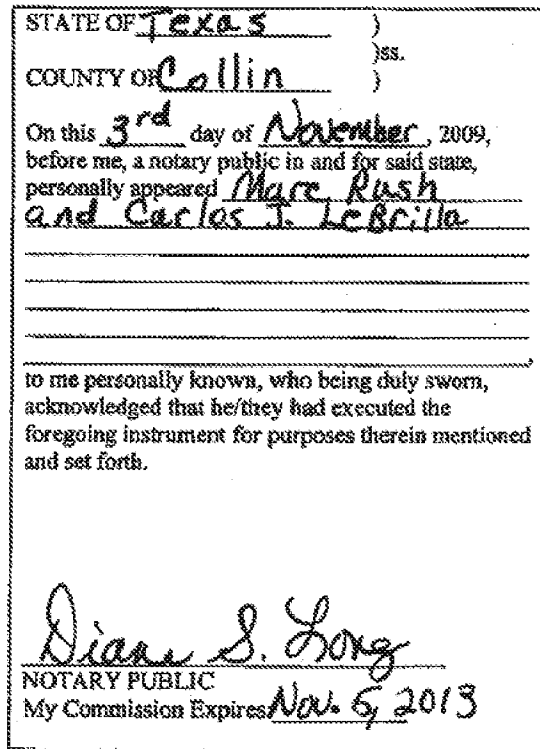 STATE OF Texas )
)ss.
COUNTY OF Collin )
On this 3rd day of November, 2009,
before me, a notary public in and for said state,
personally appeared Marc Rush
and Carlos J. LeBrilla
to me personally known, who being duly sworn,
acknowledged that he/they had executed the
foregoing instrument for purposes therein mentioned
and set forth.
Diane S. Long
NOTARY PUBLIC
My Commission Expires Nov. 5, 2013